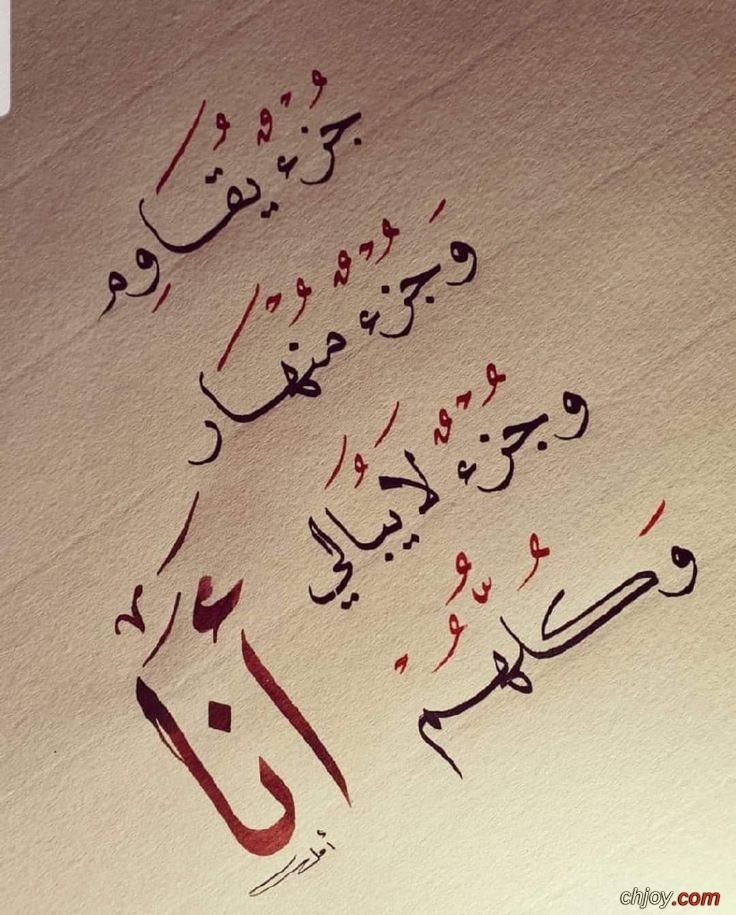 جُزْءٌ يُقَاوِم
وَجُزْءٌ مُنْهَار
وجُزْءٌ لَا يُبَالي
وَكُلُّهُمْ أَنَا
chjoy.com